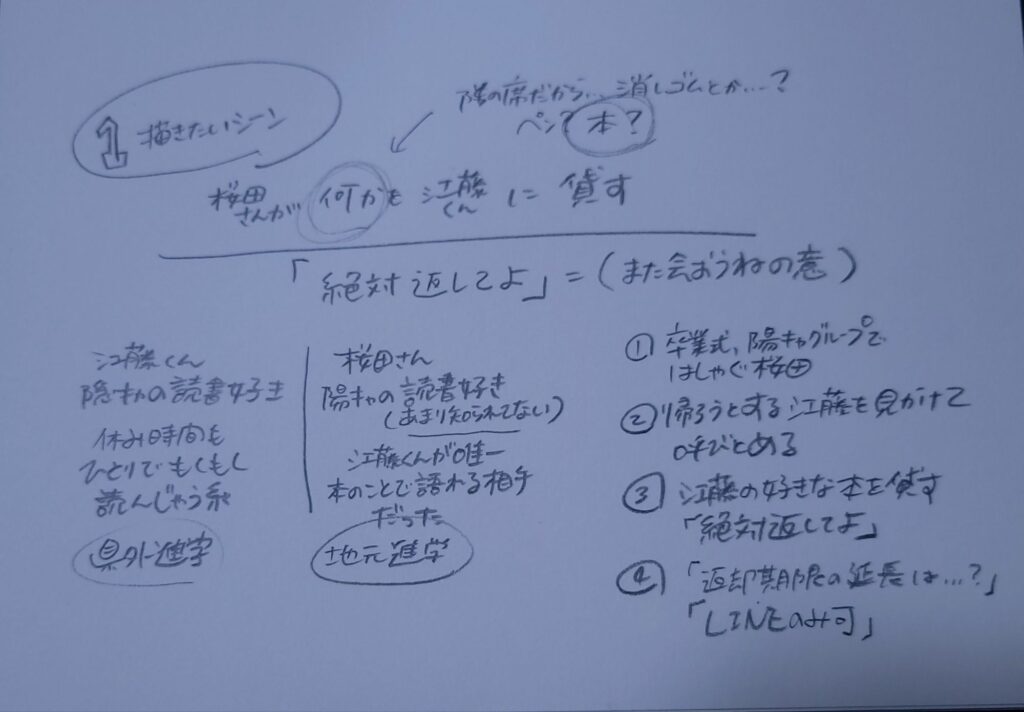 1 描きたいシーン
隣の席だから…消しゴムとか…?
ペン? 本?
桜田さんが 何かを 江藤くん に 貸す
「絶対返してよ」=(また会おうねの意)
江藤くん
陰キャの読書好き
休み時間も
ひとりでもくもく
読んじゃう系
県外進学
桜田さん
陽キャの読書好き
(あまり知られてない)
江藤くんが唯一
本のことで語れる相手
だった
地元進学
① 卒業式、陽キャグループで
はしゃぐ桜田
② 帰ろうとする江藤を見かけて
呼びとめる
③ 江藤の好きな本を貸す
「絶対返してよ」
④ 「返却期限の延長は…?」
「LINEのみ可」